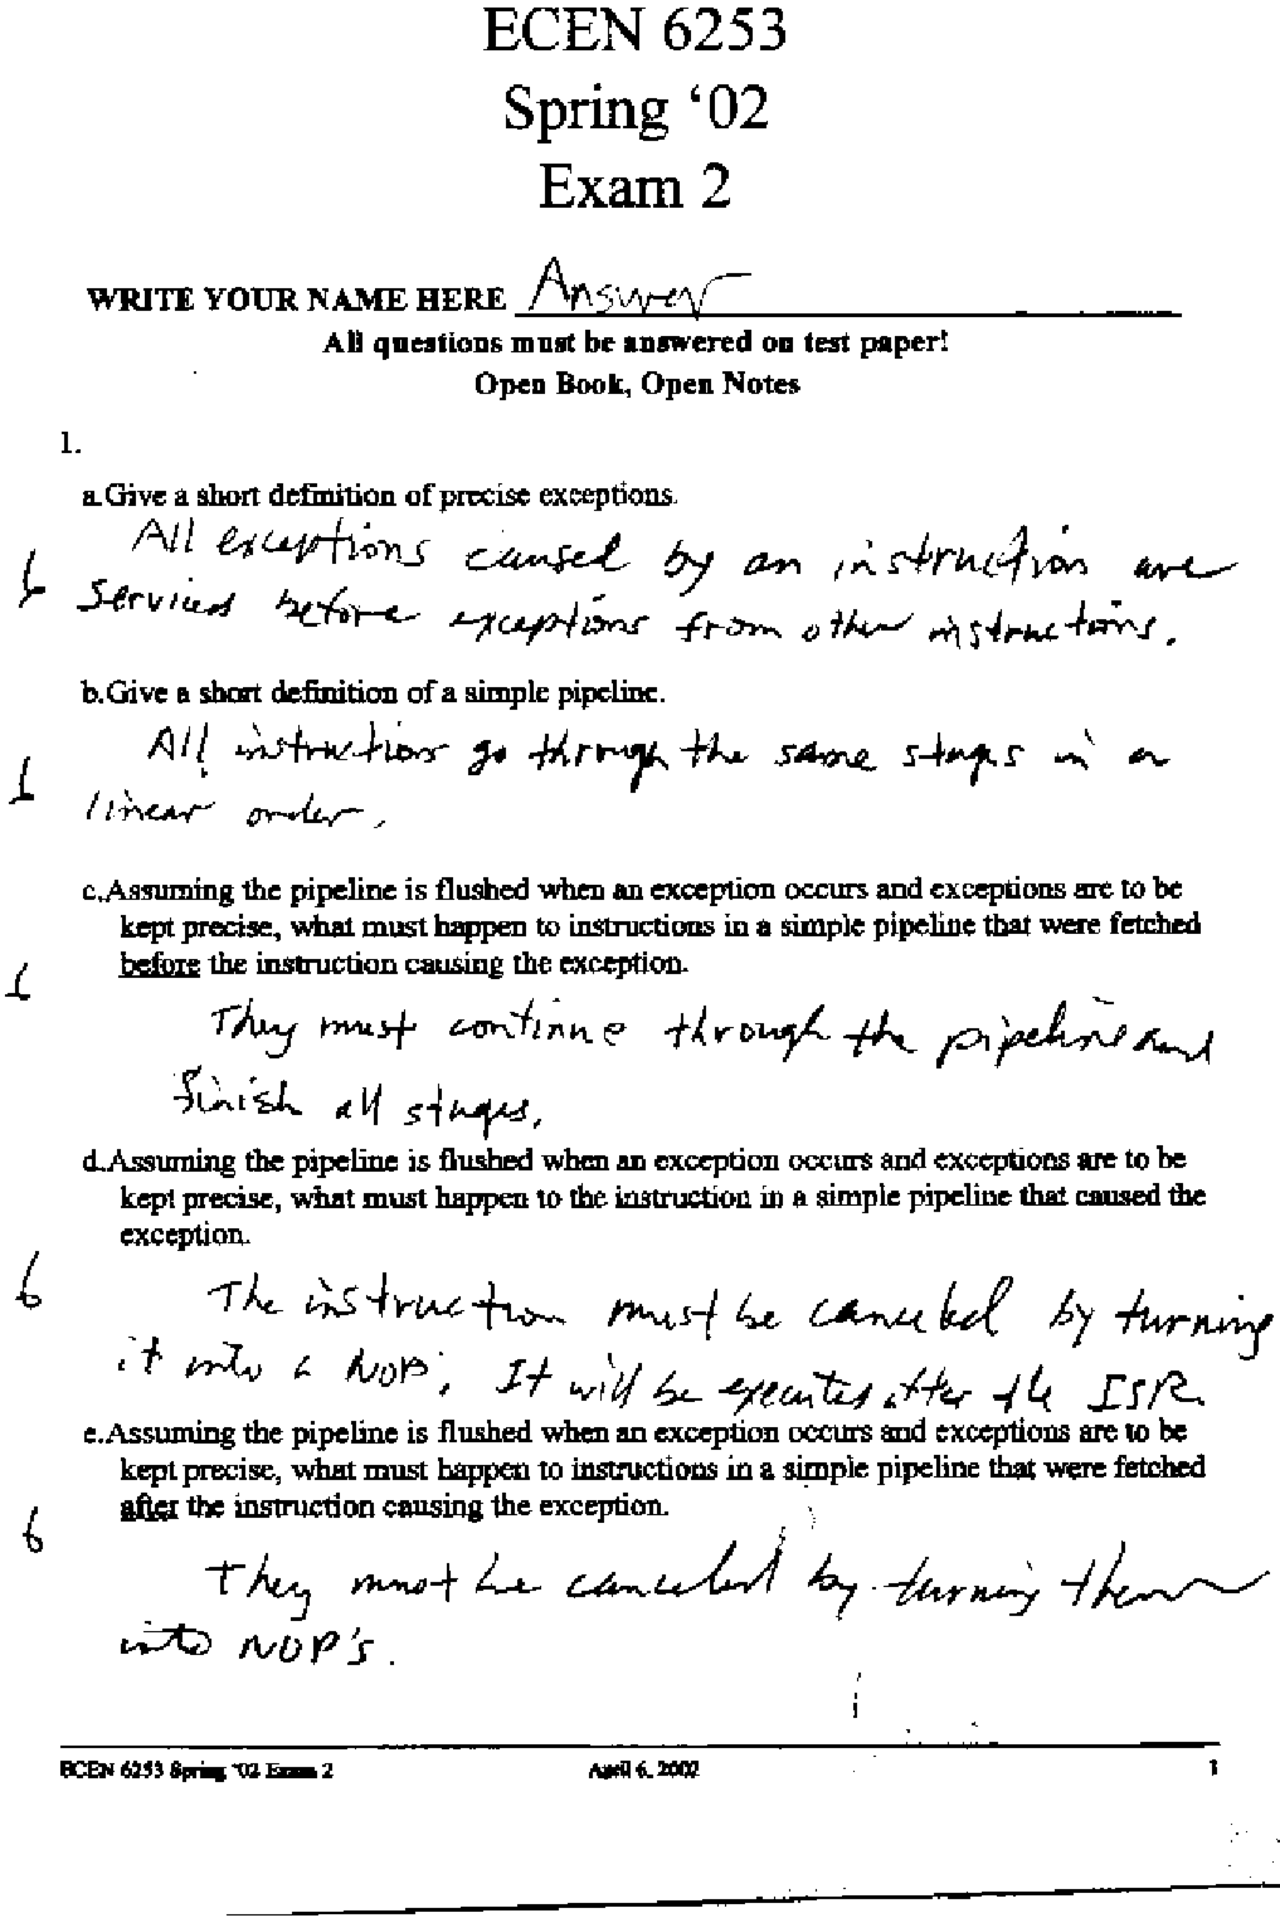 ECEN 6253
Spring ‘02
Exam 2
WRITE YOUR NAME HERE Answer
All questions must be answered on test paper!
Open Book, Open Notes
1.
a.Give a short definition of precise exceptions.
All exceptions caused by an instruction are
6 serviced before exceptions from other instructions.
b.Give a short definition of a simple pipeline.
All instructions go through the same stages in a
6 linear order.
c.Assuming the pipeline is flushed when an exception occurs and exceptions are to be
kept precise, what must happen to instructions in a simple pipeline that were fetched
before the instruction causing the exception.
6
They must continue through the pipeline and
finish all stages.
d.Assuming the pipeline is flushed when an exception occurs and exceptions are to be
kept precise, what must happen to the instruction in a simple pipeline that caused the
exception.
6 The instruction must be canceled by turning
it into a NOP. It will be executed after the ISR.
e.Assuming the pipeline is flushed when an exception occurs and exceptions are to be
kept precise, what must happen to instructions in a simple pipeline that were fetched
after the instruction causing the exception.
6
They must be canceled by turning them
into NOP's.
ECEN 6253 Spring ‘02 Exam 2 April 6, 2002 1